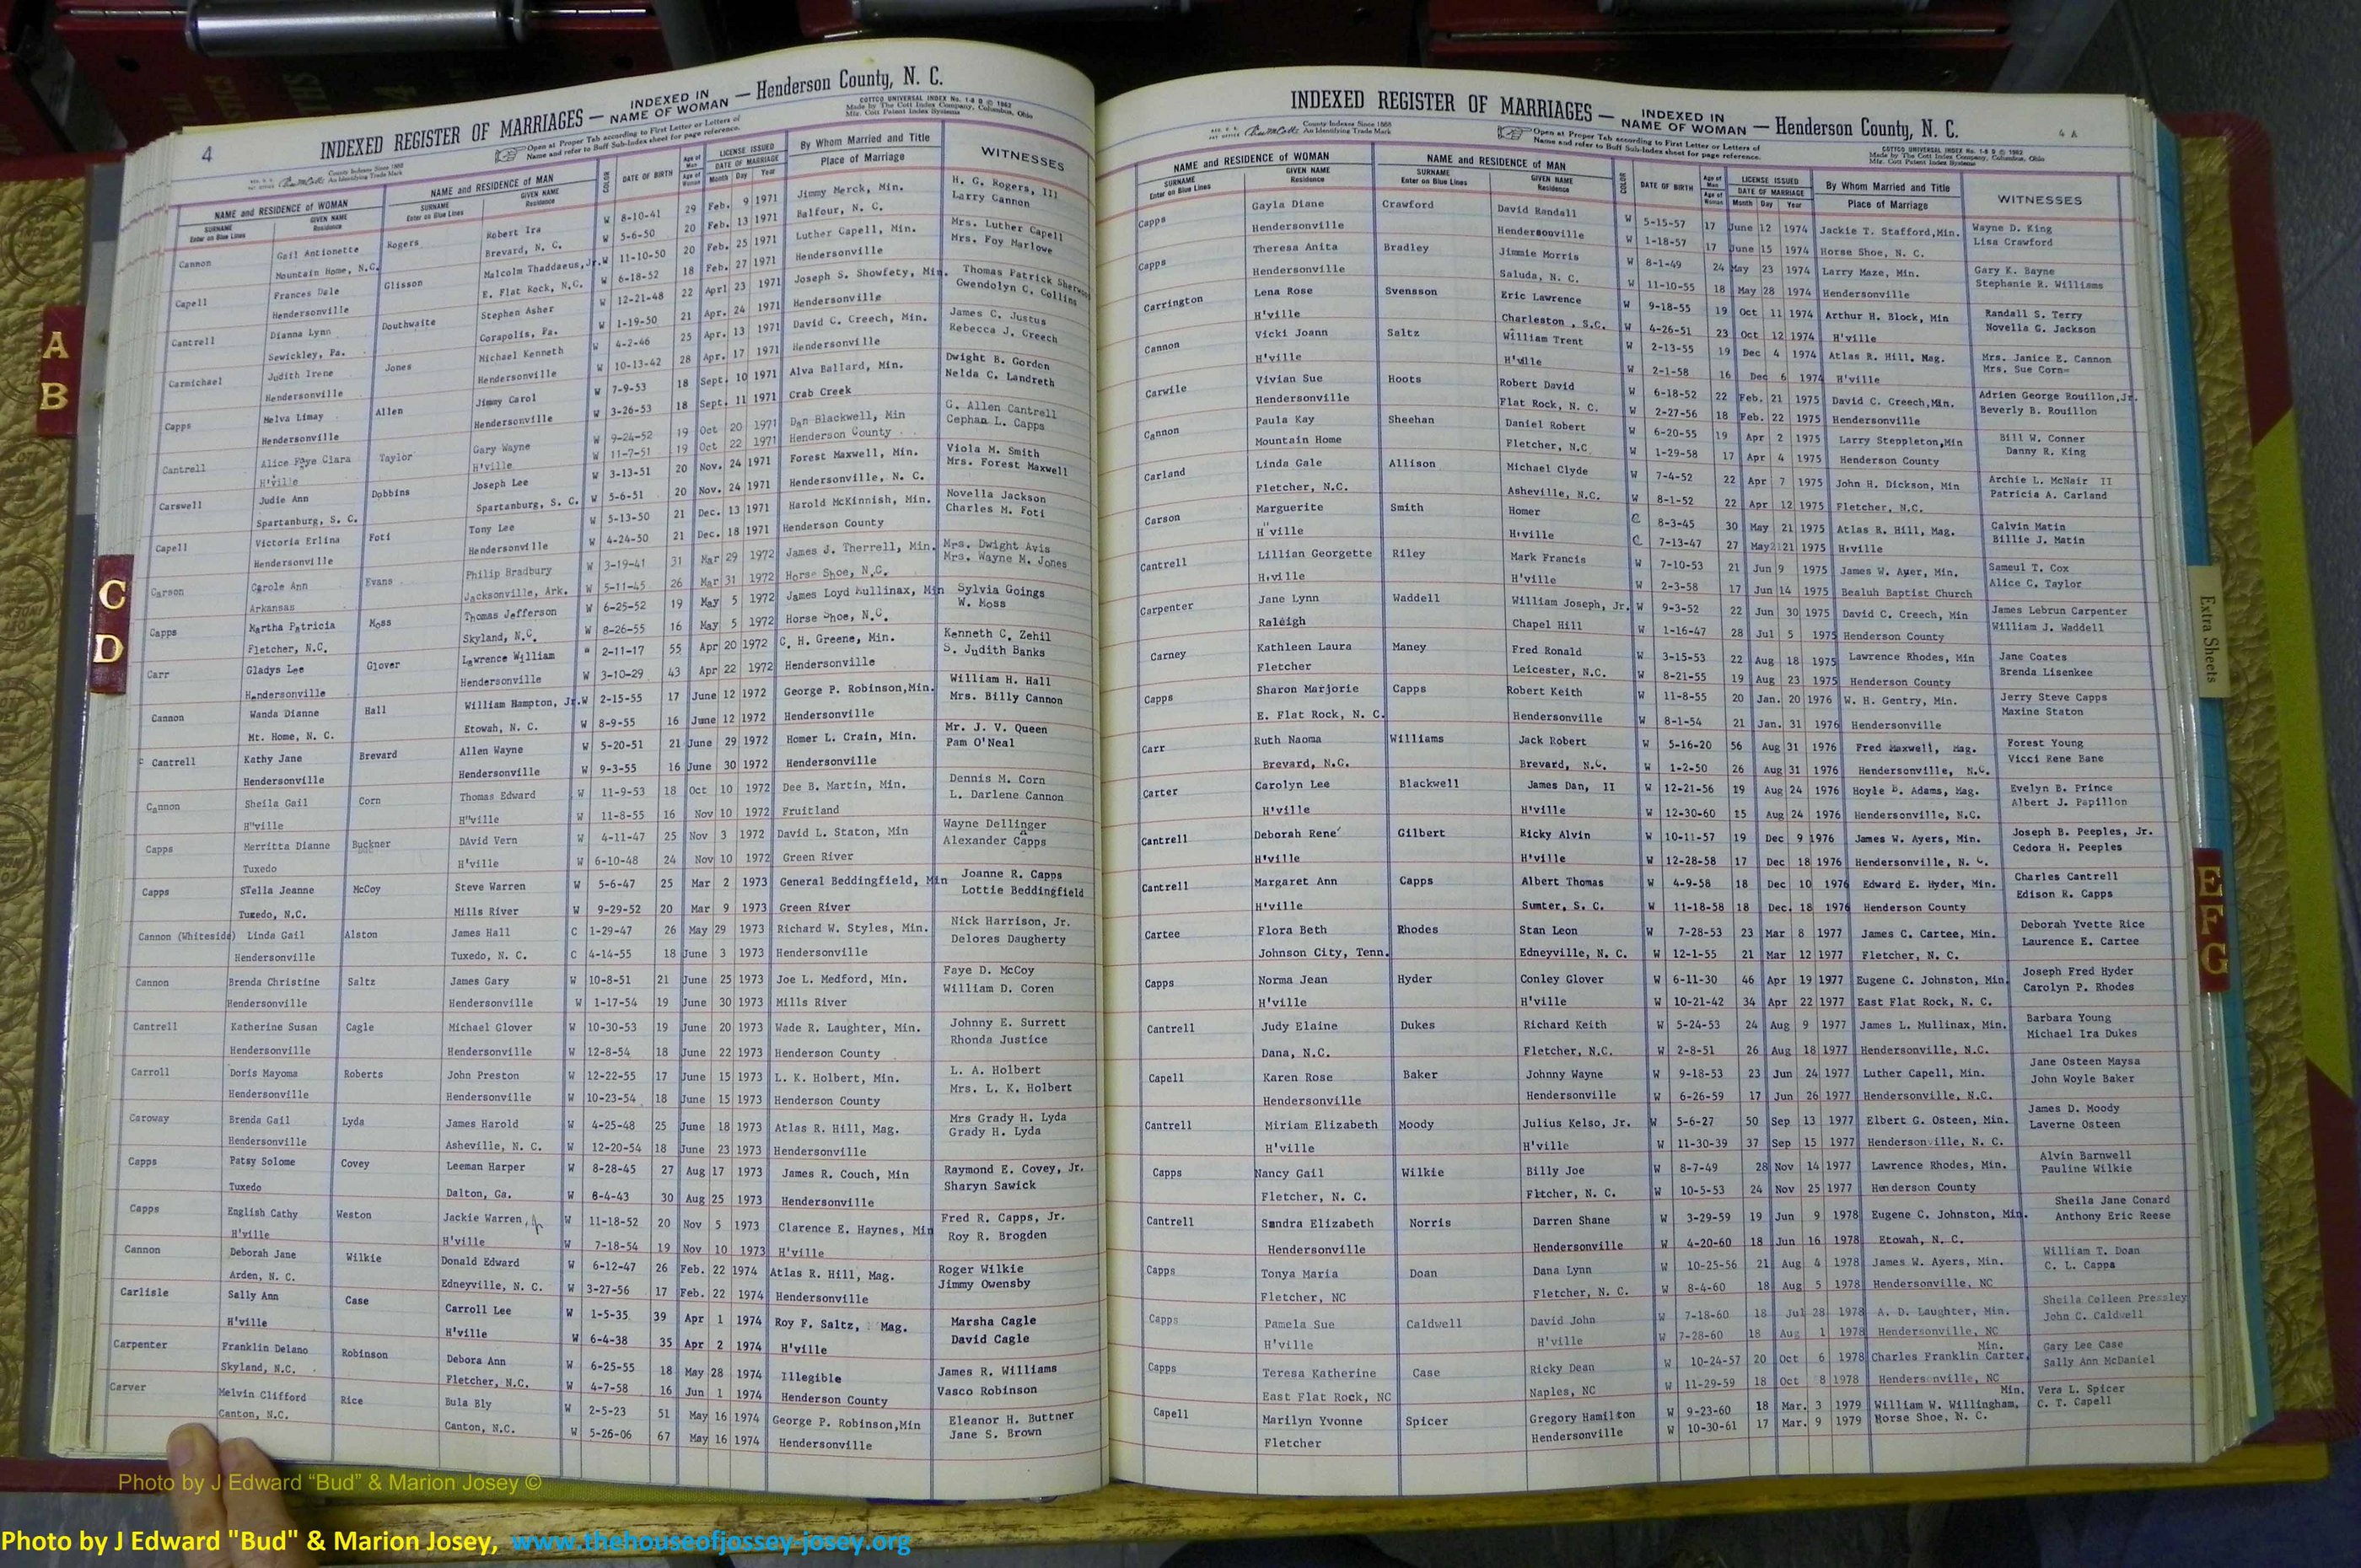 4
INDEXED REGISTER OF MARRIAGES — INDEXED IN NAME OF WOMAN — Henderson County, N. C.
County Indexes Since 1888
An Identifying Trade Mark
Open at Proper Tab according to First Letter or Letters of
Name and refer to Buff Sub-Index sheet for page reference.
COTTCO UNIVERSAL INDEX No. 1-8 B © 1962
Made by The Cott Index Company, Columbus, Ohio
Mfg. Cott Patent Index Systems
NAME and RESIDENCE OF WOMAN NAME and RESIDENCE OF MAN COLOR DATE OF BIRTH Age of Man LICENSE ISSUED By Whom Married and Title WITNESSES
SURNAME GIVEN NAME SURNAME GIVEN NAME Age of Woman DATE OF MARRIAGE Place of Marriage
Enter on Blue Lines Residence Enter on Blue Lines Residence Month Day Year
Cannon Gail Antionette Rogers Robert Ira W 8-10-41 29 Feb. 9 1971 Jimmy Merck, Min. H. G. Rogers, III
Mountain Home, N.C. Brevard, N. C. W 5-6-50 20 Feb. 13 1971 Balfour, N. C. Larry Cannon
Capell Frances Dale Glisson Malcolm Thaddaeus, Jr. W 11-10-50 20 Feb. 25 1971 Luther Capell, Min. Mrs. Luther Capell
Hendersonville E. Flat Rock, N.C. W 6-18-52 18 Feb. 27 1971 Hendersonville Mrs. Foy Marlowe
Cantrell Dianna Lynn Douthwaite Stephen Asher W 12-21-48 22 Aprl 23 1971 Joseph S. Showfety, Min. Thomas Patrick Sherwood
Sewickley, Pa. Corapolis, Pa. W 1-19-50 21 Apr. 24 1971 Hendersonville Gwendolyn C. Collins
Carmichael Judith Irene Jones Michael Kenneth W 4-2-46 25 Apr. 13 1971 David C. Creech, Min. James C. Justus
Hendersonville Hendersonville W 10-13-42 28 Apr. 17 1971 Hendersonville Rebecca J. Creech
Capps Melva Limay Allen Jimmy Carol W 7-9-53 18 Sept. 10 1971 Alva Ballard, Min. Dwight B. Gordon
Hendersonville Hendersonville W 3-26-53 18 Sept. 11 1971 Crab Creek Nelda C. Landreth
Cantrell Alice Faye Clara Taylor Gary Wayne W 9-24-52 19 Oct 20 1971 Dan Blackwell, Min G. Allen Cantrell
H'ville H'ville W 11-7-51 19 Oct 22 1971 Henderson County Cephan L. Capps
Carswell Judie Ann Dobbins Joseph Lee W 3-13-51 20 Nov. 24 1971 Forest Maxwell, Min. Viola M. Smith
Spartanburg, S. C. Spartanburg, S. C. W 5-6-51 20 Nov. 24 1971 Hendersonville, N. C. Mrs. Forest Maxwell
Capell Victoria Erlina Foti Tony Lee W 5-13-50 21 Dec. 13 1971 Harold McKinnish, Min. Novella Jackson
Hendersonville Hendersonville W 4-24-50 21 Dec. 18 1971 Henderson County Charles M. Foti
Carson Carole Ann Evans Philip Bradbury W 3-19-41 31 Mar 29 1972 James J. Therrell, Min. Mrs. Dwight Avis
Arkansas Jacksonville, Ark. W 5-11-45 26 Mar 31 1972 Horse Shoe, N.C. Mrs. Wayne M. Jones
Capps Martha Patricia Moss Thomas Jefferson W 6-25-52 19 May 5 1972 James Loyd Mullinax, Min Sylvia Goings
Fletcher, N.C. Skyland, N.C. W 8-26-55 16 May 5 1972 Horse Shoe, N.C. W. Moss
Carr Gladys Lee Glover Lawrence William W 2-11-17 55 Apr 20 1972 C. H. Greene, Min. Kenneth C. Zehil
Hendersonville Hendersonville W 3-10-29 43 Apr 22 1972 Hendersonville S. Judith Banks
Cannon Wanda Dianne Hall William Hampton, Jr. W 2-15-55 17 June 12 1972 George P. Robinson,Min. William H. Hall
Mt. Home, N. C. Etowah, N. C. W 8-9-55 16 June 12 1972 Hendersonville Mrs. Billy Cannon
Cantrell Kathy Jane Brevard Allen Wayne W 5-20-51 21 June 29 1972 Homer L. Crain, Min. Mr. J. V. Queen
Hendersonville Hendersonville W 9-3-55 16 June 30 1972 Hendersonville Pam O'Neal
Cannon Sheila Gail Corn Thomas Edward W 11-9-53 18 Oct 10 1972 Dee B. Martin, Min. Dennis M. Corn
H'ville H'ville W 11-8-55 16 Nov 10 1972 Fruitland L. Darlene Cannon
Capps Merritta Dianne Buckner DAvid Vern W 4-11-47 25 Nov 3 1972 David L. Staton, Min Wayne Dellinger
Tuxedo H'ville W 6-10-48 24 Nov 10 1972 Green River Alexander Capps
Capps STella Jeanne McCoy Steve Warren W 5-6-47 25 Mar 2 1973 General Beddingfield, Min Joanne R. Capps
Tuxedo, N.C. Mills River W 9-29-52 20 Mar 9 1973 Green River Lottie Beddingfield
Cannon (Whiteside) Linda Gail Alston James Hall C 1-29-47 26 May 29 1973 Richard W. Styles, Min. Nick Harrison, Jr.
Hendersonville Tuxedo, N. C. C 4-14-55 18 June 3 1973 Hendersonville Delores Daugherty
Cannon Brenda Christine Saltz James Gary W 10-8-51 21 June 25 1973 Joe L. Medford, Min. Faye D. McCoy
Hendersonville Hendersonville W 1-17-54 19 June 30 1973 Mills River William D. Coren
Cantrell Katherine Susan Cagle Michael Glover W 10-30-53 19 June 20 1973 Wade R. Laughter, Min. Johnny E. Surrett
Hendersonville Hendersonville W 12-8-54 18 June 22 1973 Henderson County Rhonda Justice
Carroll Doris Mayoma Roberts John Preston W 12-22-55 17 June 15 1973 L. K. Holbert, Min. L. A. Holbert
Hendersonville Hendersonville W 10-23-54 18 June 15 1973 Henderson County Mrs. L. K. Holbert
Caroway Brenda Gail Lyda James Harold W 4-25-48 25 June 18 1973 Atlas R. Hill, Mag. Mrs Grady H. Lyda
Hendersonville Asheville, N. C. W 12-20-54 18 June 23 1973 Hendersonville Grady H. Lyda
Capps Patsy Solome Covey Leeman Harper W 8-28-45 27 Aug 17 1973 James R. Couch, Min Raymond E. Covey, Jr.
Tuxedo Dalton, Ga. W 8-4-43 30 Aug 25 1973 Hendersonville Sharyn Sawick
Capps English Cathy Weston Jackie Warren, Jr W 11-18-52 20 Nov 5 1973 Clarence E. Haynes, Min Fred R. Capps, Jr.
H'ville H'ville W 7-18-54 19 Nov 10 1973 H'ville Roy R. Brogden
Cannon Deborah Jane Wilkie Donald Edward W 6-12-47 26 Feb. 22 1974 Atlas R. Hill, Mag. Roger Wilkie
Arden, N. C. Edneyville, N. C. W 3-27-56 17 Feb. 22 1974 Hendersonville Jimmy Owensby
Carlisle Sally Ann Case Carroll Lee W 1-5-35 39 Apr 1 1974 Roy F. Saltz, Mag. Marsha Cagle
H'ville H'ville W 6-4-38 35 Apr 2 1974 H'ville David Cagle
Carpenter Franklin Delano Robinson Debora Ann W 6-25-55 18 May 28 1974 Illegible James R. Williams
Skyland, N.C. Fletcher, N.C. W 4-7-58 16 Jun 1 1974 Henderson County Vasco Robinson
Carver Melvin Clifford Rice Bula Bly W 2-5-23 51 May 16 1974 George P. Robinson,Min Eleanor H. Buttner
Canton, N.C. Canton, N.C. W 5-26-06 67 May 16 1974 Hendersonville Jane S. Brown
4 A
INDEXED REGISTER OF MARRIAGES — INDEXED IN NAME OF WOMAN — Henderson County, N. C.
County Indexes Since 1888
An Identifying Trade Mark
Open at Proper Tab according to First Letter or Letters of
Name and refer to Buff Sub-Index sheet for page reference.
COTTCO UNIVERSAL INDEX No. 1-8 B © 1962
Made by The Cott Index Company, Columbus, Ohio
Mfg. Cott Patent Index Systems
NAME and RESIDENCE OF WOMAN NAME and RESIDENCE OF MAN COLOR DATE OF BIRTH Age of Man LICENSE ISSUED By Whom Married and Title WITNESSES
SURNAME GIVEN NAME SURNAME GIVEN NAME Age of Woman DATE OF MARRIAGE Place of Marriage
Enter on Blue Lines Residence Enter on Blue Lines Residence Month Day Year
Capps Gayla Diane Crawford David Randall W 5-15-57 17 June 12 1974 Jackie T. Stafford,Min. Wayne D. King
Hendersonville Hendersonville W 1-18-57 17 June 15 1974 Horse Shoe, N. C. Lisa Crawford
Capps Theresa Anita Bradley Jimmie Morris W 8-1-49 24 May 23 1974 Larry Maze, Min. Gary K. Bayne
Hendersonville Saluda, N. C. W 11-10-55 18 May 28 1974 Hendersonville Stephanie R. Williams
Carrington Lena Rose Svensson Eric Lawrence W 9-18-55 19 Oct 11 1974 Arthur H. Block, Min Randall S. Terry
H'ville Charleston , S.C. W 4-26-51 23 Oct 12 1974 H'ville Novella G. Jackson
Cannon Vicki Joann Saltz William Trent W 2-13-55 19 Dec 4 1974 Atlas R. Hill, Mag. Mrs. Janice E. Cannon
H'ville H'ville W 2-1-58 16 Dec 6 1974 H'ville Mrs. Sue Corn
Carwile Vivian Sue Hoots Robert David W 6-18-52 22 Feb. 21 1975 David C. Creech,Min. Adrien George Rouillon,Jr.
Hendersonville Flat Rock, N. C. W 2-27-56 18 Feb. 22 1975 Hendersonville Beverly B. Rouillon
Cannon Paula Kay Sheehan Daniel Robert W 6-20-55 19 Apr 2 1975 Larry Steppleton,Min Bill W. Conner
Mountain Home Fletcher, N.C W 1-29-58 17 Apr 4 1975 Henderson County Danny R. King
Carland Linda Gale Allison Michael Clyde W 7-4-52 22 Apr 7 1975 John H. Dickson, Min Archie L. McNair II
Fletcher, N.C. Asheville, N.C. W 8-1-52 22 Apr 12 1975 Fletcher, N.C. Patricia A. Carland
Carson Marguerite Smith Homer C 8-3-45 30 May 21 1975 Atlas R. Hill, Mag. Calvin Matin
H"ville H'ville C 7-13-47 27 May 21 1975 H'ville Billie J. Matin
Cantrell Lillian Georgette Riley Mark Francis W 7-10-53 21 Jun 9 1975 James W. Ayer, Min. Sameul T. Cox
H'ville H'ville W 2-3-58 17 Jun 14 1975 Bealuh Baptist Church Alice C. Taylor
Carpenter Jane Lynn Waddell William Joseph, Jr. W 9-3-52 22 Jun 30 1975 David C. Creech, Min James Lebrun Carpenter
Raleigh Chapel Hill W 1-16-47 28 Jul 5 1975 Henderson County William J. Waddell
Carney Kathleen Laura Maney Fred Ronald W 3-15-53 22 Aug 18 1975 Lawrence Rhodes, Min Jane Coates
Fletcher Leicester, N.C. W 8-21-55 19 Aug 23 1975 Henderson County Brenda Lisenkee
Capps Sharon Marjorie Capps Robert Keith W 11-8-55 20 Jan. 20 1976 W. H. Gentry, Min. Jerry Steve Capps
E. Flat Rock, N. C. Hendersonville W 8-1-54 21 Jan. 31 1976 Hendersonville Maxine Staton
Carr Ruth Naoma Williams Jack Robert W 5-16-20 56 Aug 31 1976 Fred Maxwell, Mag. Forest Young
Brevard, N.C. Brevard, N.C. W 1-2-50 26 Aug 31 1976 Hendersonville, N.C. Vicci Rene Bane
Carter Carolyn Lee Blackwell James Dan, II W 12-21-56 19 Aug 24 1976 Hoyle B. Adams, Mag. Evelyn B. Prince
H'ville H'ville W 12-30-60 15 Aug 24 1976 Hendersonville, N.C. Albert J. Papillon
Cantrell Deborah Rene' Gilbert Ricky Alvin W 10-11-57 19 Dec 9 1976 James W. Ayers, Min. Joseph B. Peeples, Jr.
H'ville H'ville W 12-28-58 17 Dec 18 1976 Hendersonville, N. C. Cedora H. Peeples
Cantrell Margaret Ann Capps Albert Thomas W 4-9-58 18 Dec 10 1976 Edward E. Hyder, Min. Charles Cantrell
H'ville Sumter, S. C. W 11-18-58 18 Dec. 18 1976 Henderson County Edison R. Capps
Cartee Flora Beth Rhodes Stan Leon W 7-28-53 23 Mar 8 1977 James C. Cartee, Min. Deborah Yvette Rice
Johnson City, Tenn. Edneyville, N. C. W 12-1-55 21 Mar 12 1977 Fletcher, N. C. Laurence E. Cartee
Capps Norma Jean Hyder Conley Glover W 6-11-30 46 Apr 19 1977 Eugene C. Johnston, Min. Joseph Fred Hyder
H'ville H'ville W 10-21-42 34 Apr 22 1977 East Flat Rock, N. C. Carolyn P. Rhodes
Cantrell Judy Elaine Dukes Richard Keith W 5-24-53 24 Aug 9 1977 James L. Mullinax, Min. Barbara Young
Dana, N.C. Fletcher, N.C. W 2-8-51 26 Aug 18 1977 Hendersonville, N.C. Michael Ira Dukes
Capell Karen Rose Baker Johnny Wayne W 9-18-53 23 Jun 24 1977 Luther Capell, Min. Jane Osteen Maysa
Hendersonville Hendersonville W 6-26-59 17 Jun 26 1977 Hendersonville, N.C. John Woyle Baker
Cantrell Miriam Elizabeth Moody Julius Kelso, Jr. W 5-6-27 50 Sep 13 1977 Elbert G. Osteen, Min. James D. Moody
H'ville H'ville W 11-30-39 37 Sep 15 1977 Hendersonville, N. C. Laverne Osteen
Capps Nancy Gail Wilkie Billy Joe W 8-7-49 28 Nov 14 1977 Lawrence Rhodes, Min. Alvin Barnwell
Fletcher, N. C. Fltcher, N. C. W 10-5-53 24 Nov 25 1977 Henderson County Pauline Wilkie
Cantrell Sandra Elizabeth Norris Darren Shane W 3-29-59 19 Jun 9 1978 Eugene C. Johnston, Min. Sheila Jane Conard
Hendersonville Hendersonville W 4-20-60 18 Jun 16 1978 Etowah, N. C. Anthony Eric Reese
Capps Tonya Maria Doan Dana Lynn W 10-25-56 21 Aug 4 1978 James W. Ayers, Min. William T. Doan
Fletcher, NC Fletcher, N. C. W 8-4-60 18 Aug 5 1978 Hendersonville, NC C. L. Capps
Capps Pamela Sue Caldwell David John W 7-18-60 18 Jul 28 1978 A. D. Laughter, Min. Sheila Colleen Pressley
H'ville H'ville W 7-28-60 18 Aug 1 1978 Hendersonville, NC John C. Caldwell
Capps Teresa Katherine Case Ricky Dean W 10-24-57 20 Oct 6 1978 Charles Franklin Carter, Min. Gary Lee Case
East Flat Rock, NC Naples, NC W 11-29-59 18 Oct 8 1978 Hendersonville, NC Sally Ann McDaniel
Capell Marilyn Yvonne Spicer Gregory Hamilton W 9-23-60 18 Mar. 3 1979 William W. Willingham, Min. Vera L. Spicer
Fletcher Hendersonville W 10-30-61 17 Mar. 9 1979 Horse Shoe, N. C. C. T. Capell
A
B
C
D
Extra Sheets
E
F
G
Photo by J Edward “Bud” & Marion Josey ©
Photo by J Edward "Bud" & Marion Josey, www.thehouseofjossey-josey.org